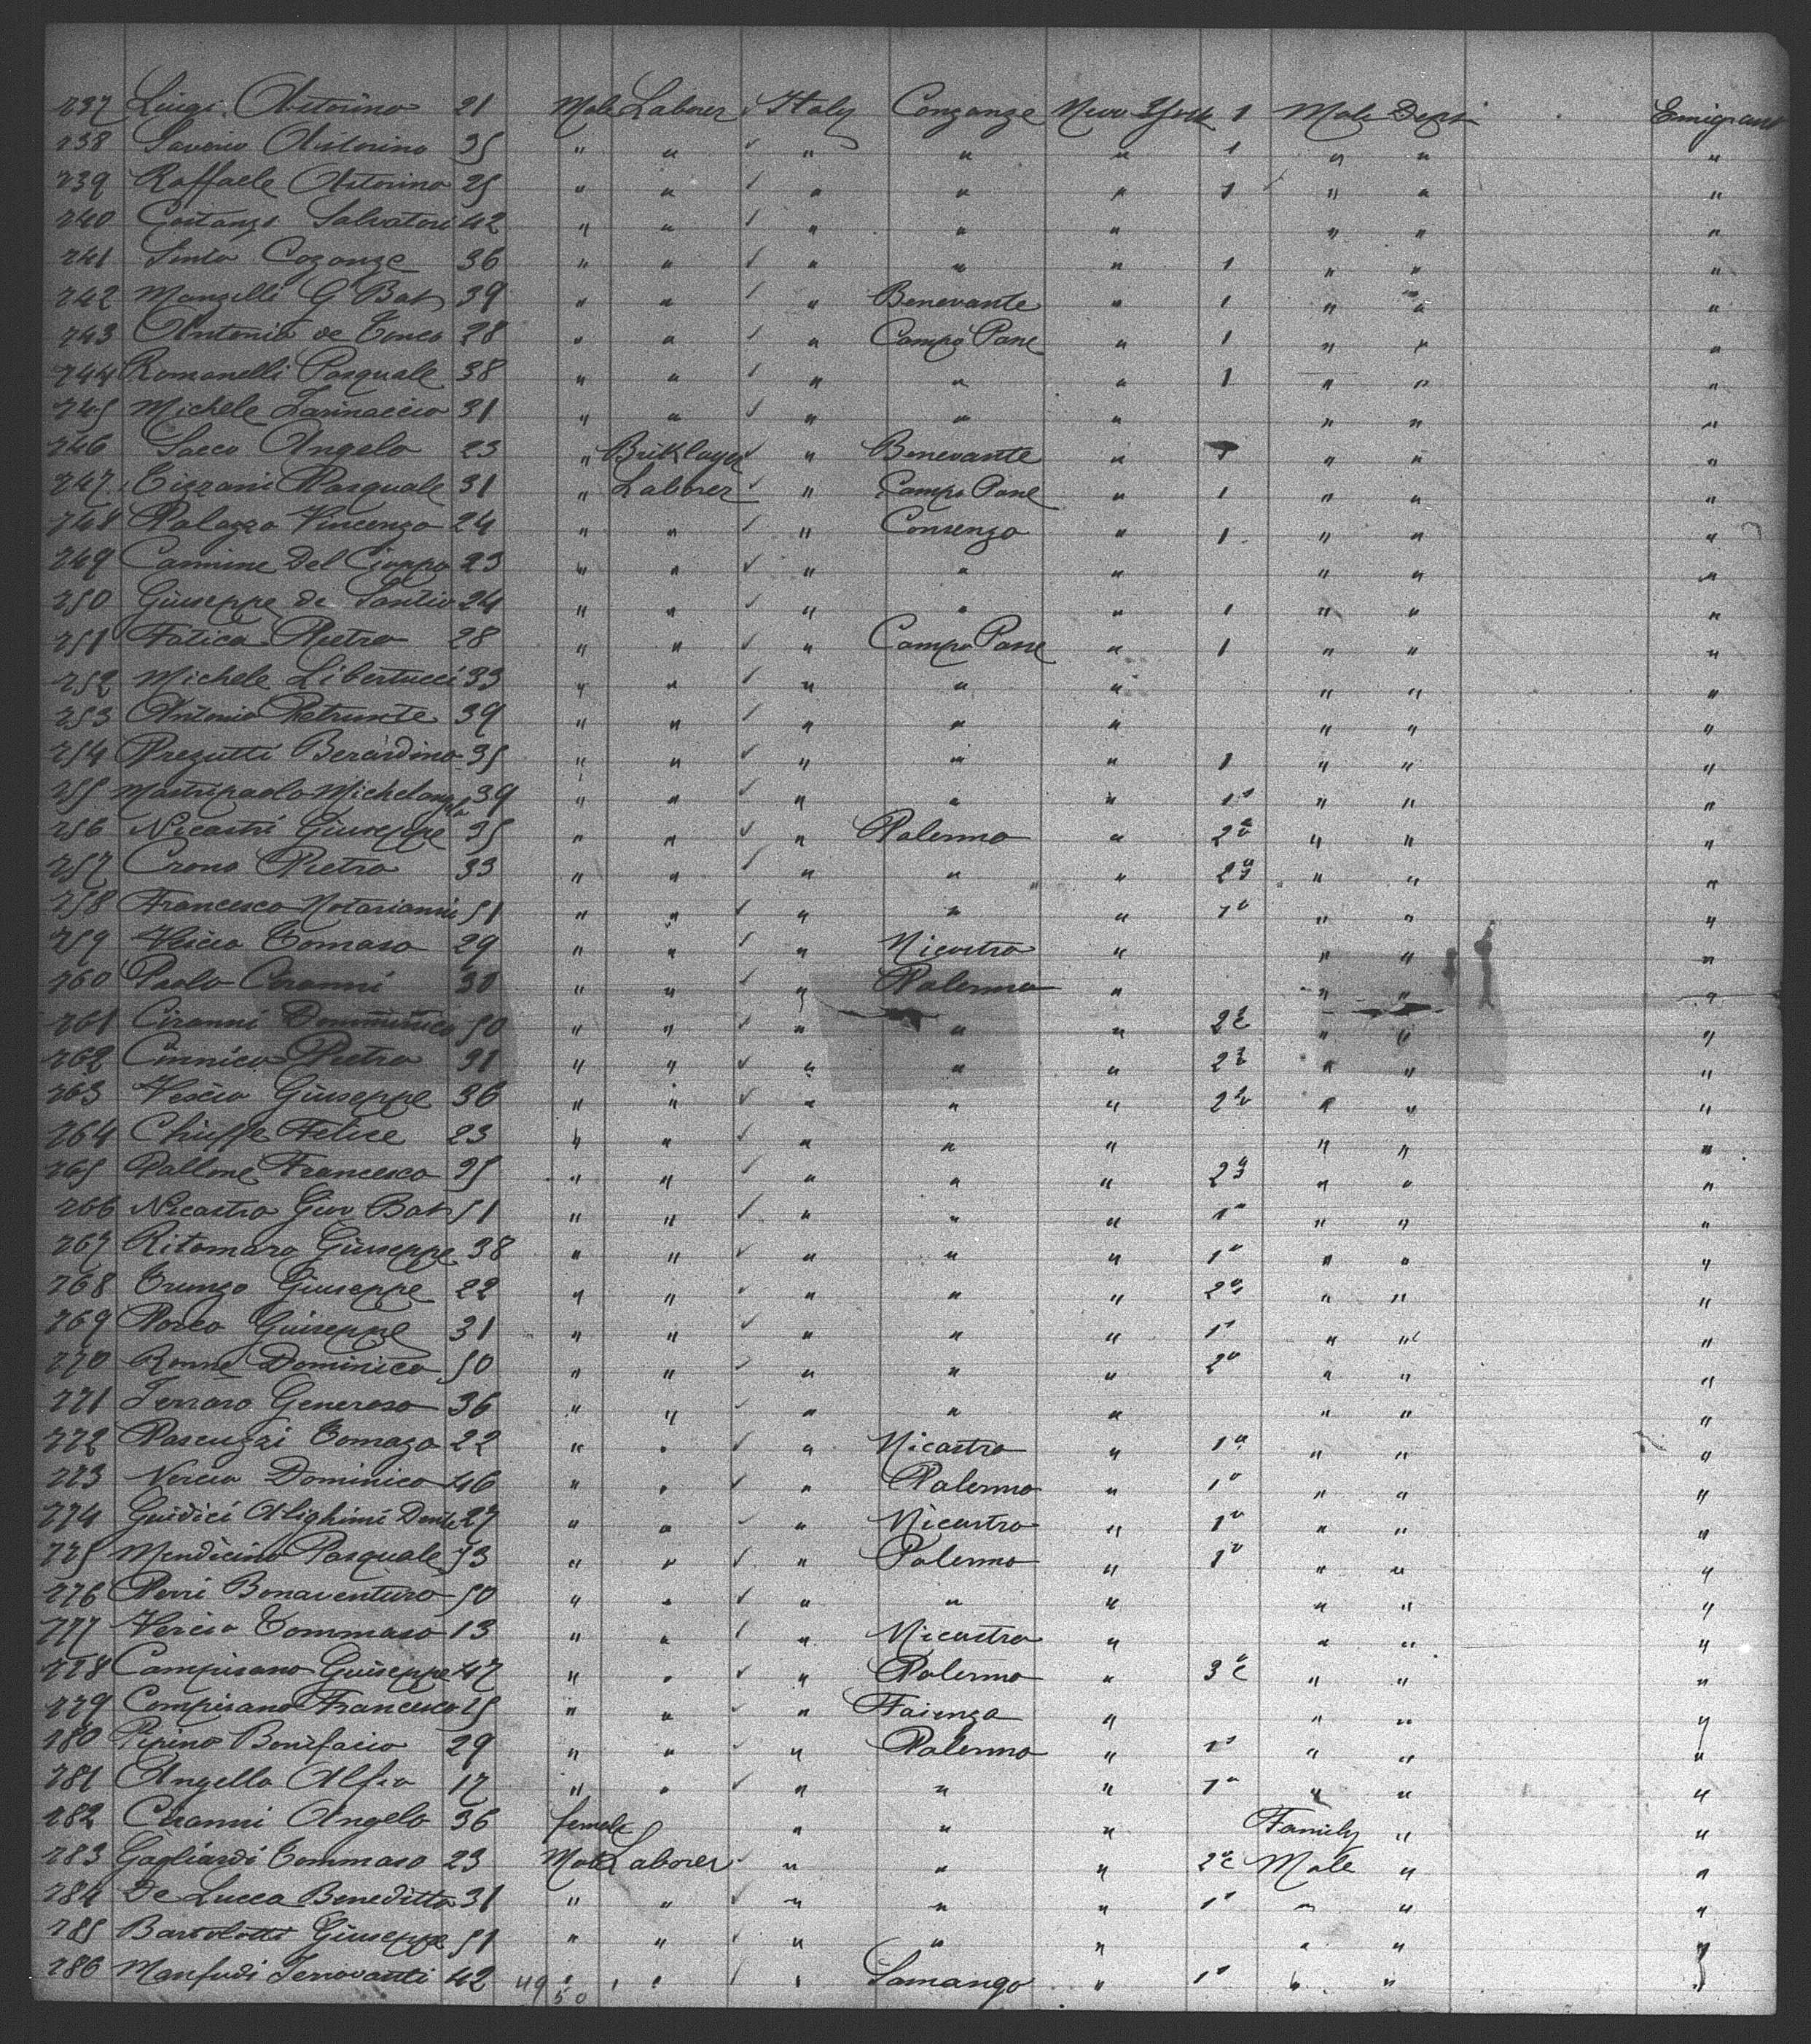 737 Luigi Astorino 21 Male Laborer ✓ Italy Conzanze New York 1 Male Dept Emigrant
738 Saverio Astorino 35 " " ✓ " " " 1 " " "
739 Raffaele Astorino 25 " " ✓ " " " 1 " " "
740 Costanzo Salvatore 42 " " ✓ " " " " " "
741 Sinto Cozanze 36 " " ✓ " " " 1 " " "
742 Manzelli G Bat 39 " " ✓ " Benevante " 1 " " "
743 Antonio de Tonco 28 " " ✓ " Campo Pane " 1 " " "
744 Romanelli Pasquale 38 " " ✓ " " " 1 " " "
745 Michele Iarinaccio 31 " " ✓ " " " " " "
746 Sacco Angelo 23 " Briklayer ✓ " Benevante " 1 " " "
747 Tizzani Pasquale 31 " Laborer ✓ " Campo Pane " 1 " " "
748 Palazzo Vincenzo 24 " " ✓ " Consenzo " 1 " " "
749 Carmine Del Cioppo 23 " " ✓ " " " " " "
750 Giuseppe de Santis 24 " " ✓ " " " 1 " " "
751 Fatica Pietro 28 " " ✓ " Campo Pane " 1 " " "
752 Michele Libertucci 33 " " ✓ " " " " " "
753 Antonio Petrunte 39 " " ✓ " " " " " "
754 Prezutti Berardino 35 " " ✓ " " " 1 " " "
755 Mastripaolo Michelangelo 39 " " ✓ " " " 1 " " "
756 Nicastri Giuseppe 35 " " ✓ " Palermo " 2 " " "
757 Crono Pietro 33 " " ✓ " " " 2 " " "
758 Francesco Notarianni 51 " " ✓ " " " 1 " " "
759 Vescio Tomaso 29 " " ✓ " Nicastro " " " "
760 Paolo Ciranni 30 " " ✓ " Palermo " " " "
761 Ciranni Domminico 50 " " ✓ " " " 2 " " "
762 Cinnico Pietro 31 " " ✓ " " " 2 " " "
763 Vescio Giuseppe 36 " " ✓ " " " 2 " " "
764 Chieffe Felice 23 " " ✓ " " " " " "
765 Pallone Francesco 25 " " ✓ " " " 2 " " "
766 Nicastro Giov Bat 51 " " ✓ " " " 1 " " "
767 Ritomaro Giuseppe 38 " " ✓ " " " 1 " " "
768 Trunzo Giuseppe 22 " " ✓ " " " 2 " " "
769 Porco Giuseppe 31 " " ✓ " " " 1 " " "
770 Ronne Dominico 50 " " ✓ " " " 2 " " "
771 Ferraro Generoso 36 " " ✓ " " " " " "
772 Pascuzzi Tomazo 22 " " ✓ " Nicastro " 1 " " "
773 Vescio Dominico 46 " " ✓ " Palermo " 1 " " "
774 Guidici Alighimi Dente 27 " " ✓ " Nicastro " 1 " " "
775 Mendicino Pasquale 73 " " ✓ " Palermo " 1 " " "
776 Perri Bonaventuro 50 " " ✓ " " " " " "
777 Vescio Tommaso 13 " " ✓ " Nicastro " " " "
778 Campisano Giuseppe 47 " " ✓ " Palermo " 3 " " "
779 Compisano Francesco 25 " " ✓ " Faienza " " " "
780 Pipino Bonifacio 29 " " ✓ " Palermo " 1 " " "
781 Angello Alfio 17 " " ✓ " " " 1 " " "
782 Ciranni Angelo 36 female " " " Family " "
783 Gagliardi Tommaso 23 Male Laborer ✓ " " " 2 Male " "
784 De Lucca Beneditto 31 " " ✓ " " " 1 " " "
785 Bartolotti Giuseppe 51 " " ✓ " " " " " "
786 Manfudi Ferrovanti 42 49 " " ✓ " Samango " 1 " " "
50